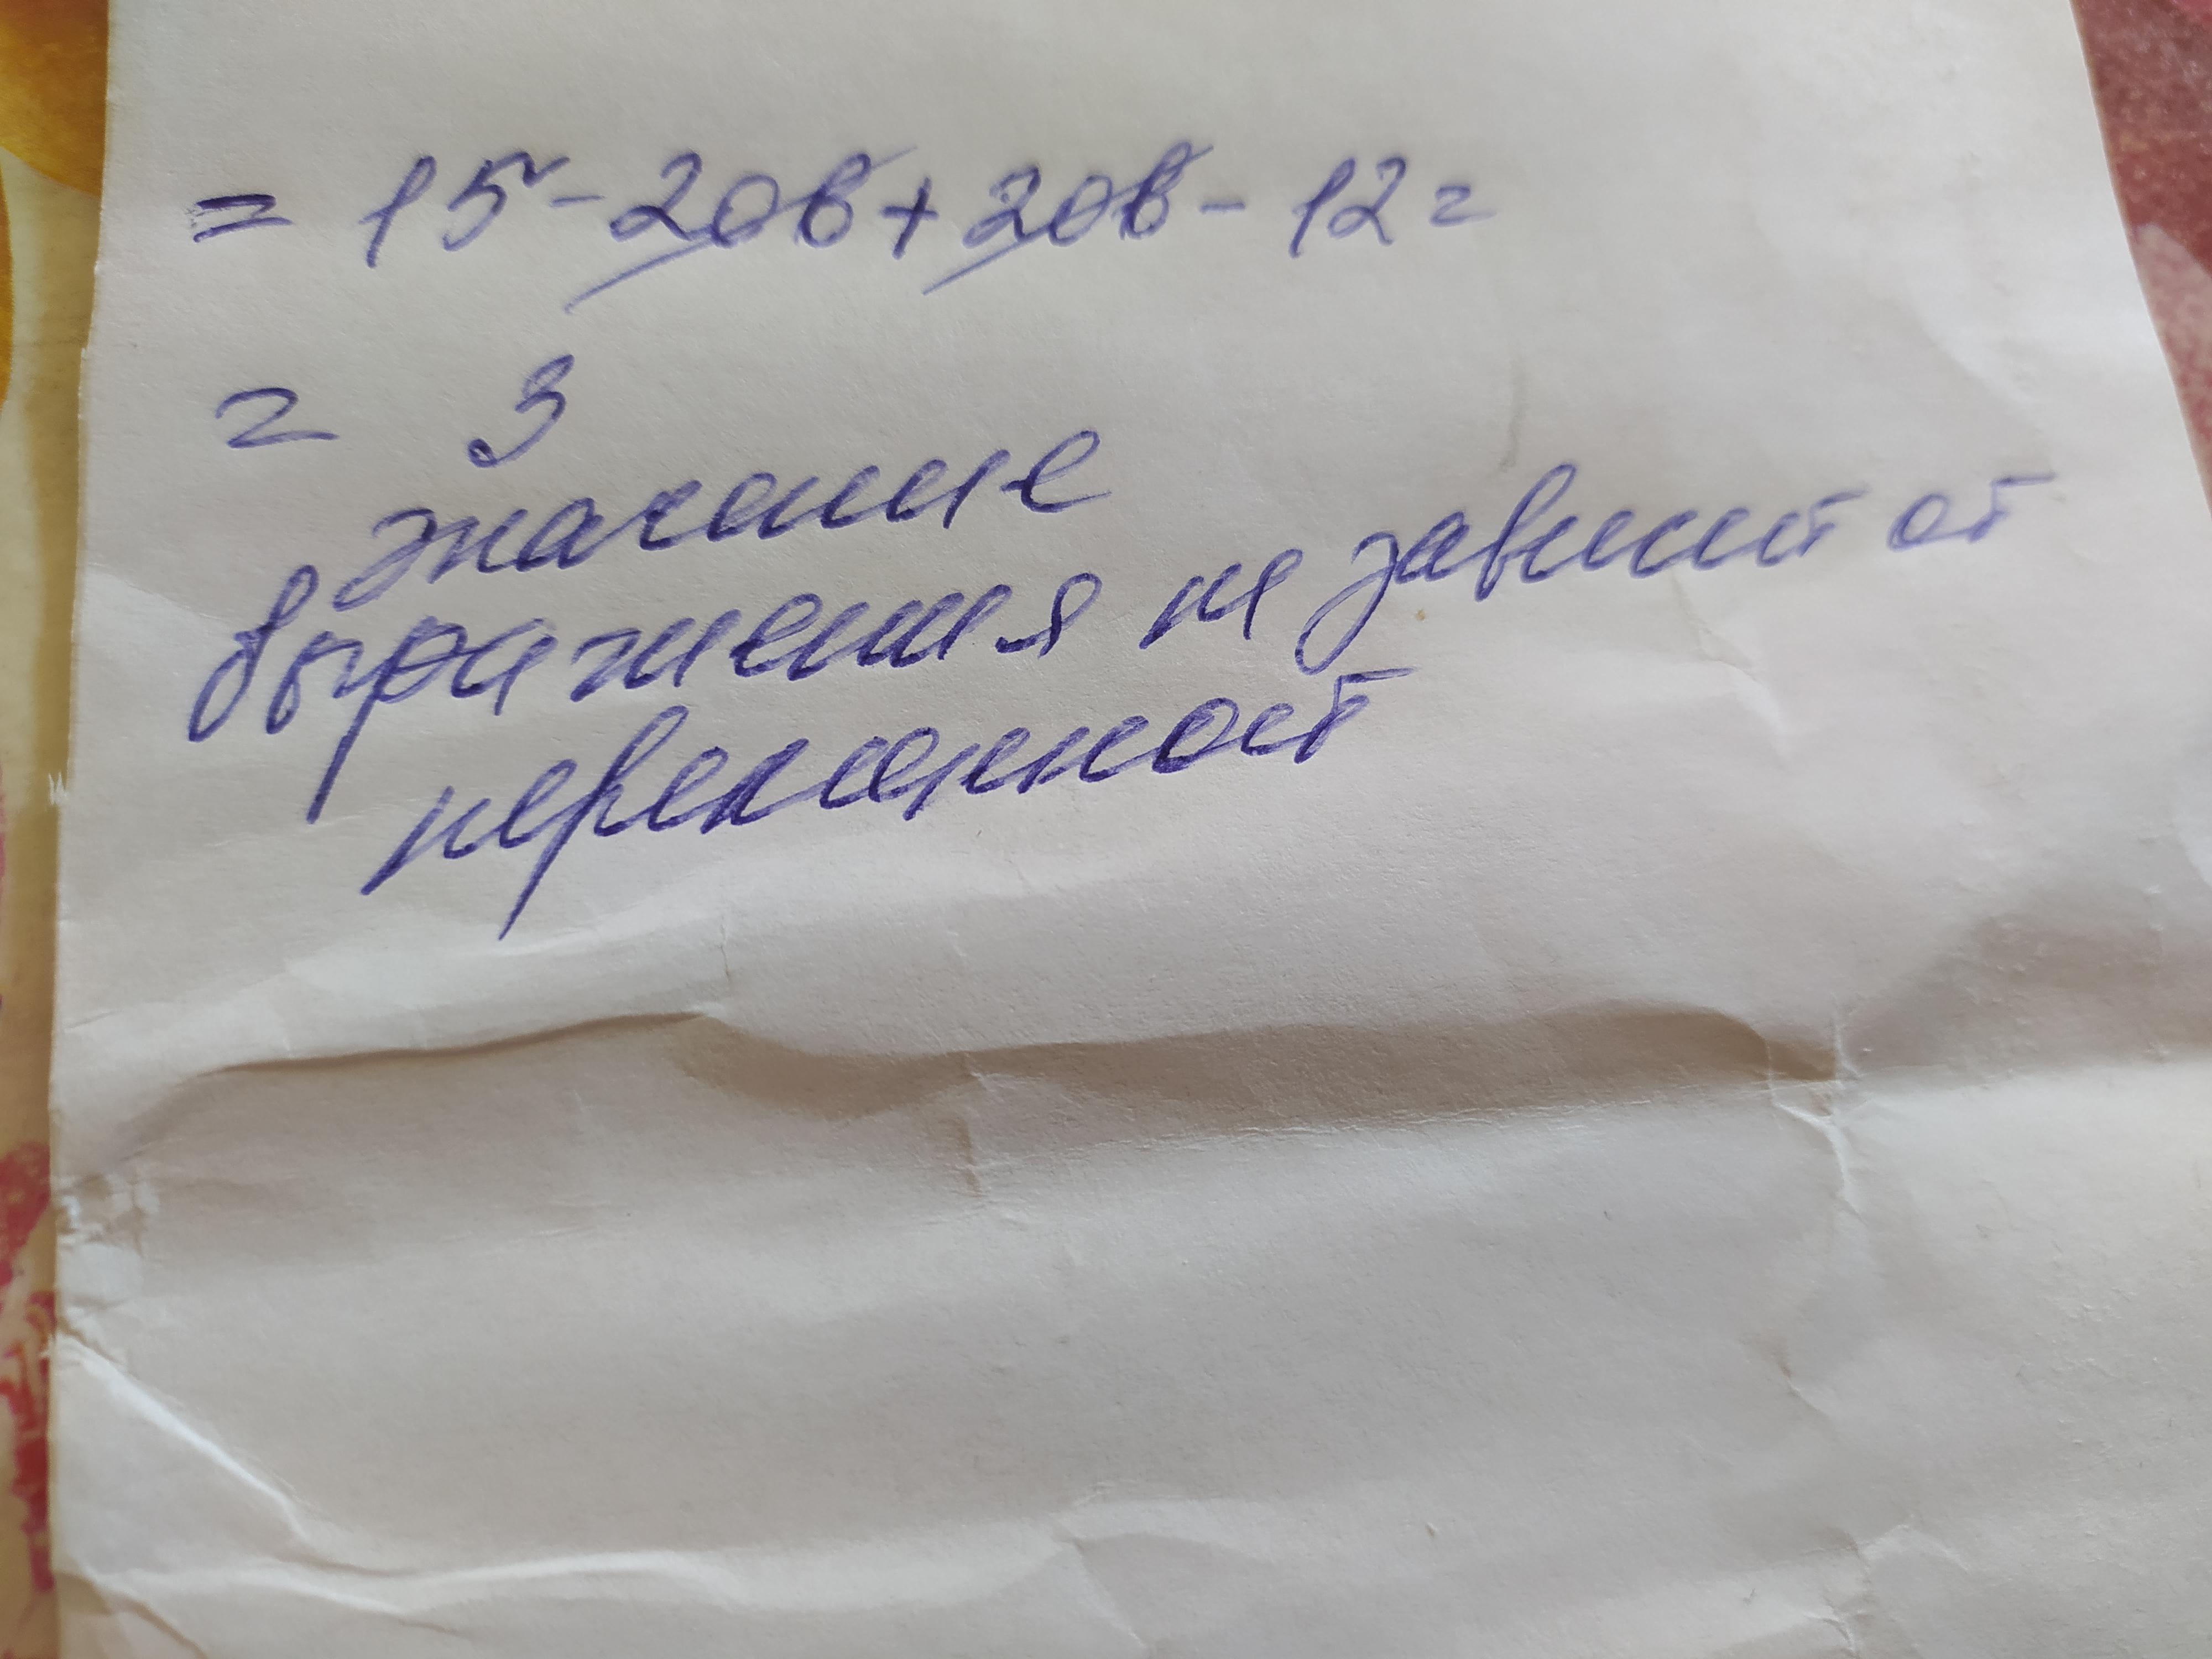 = 15 - 20в + 20в - 12 =
= 3
значение
выражения не зависит от
переменност